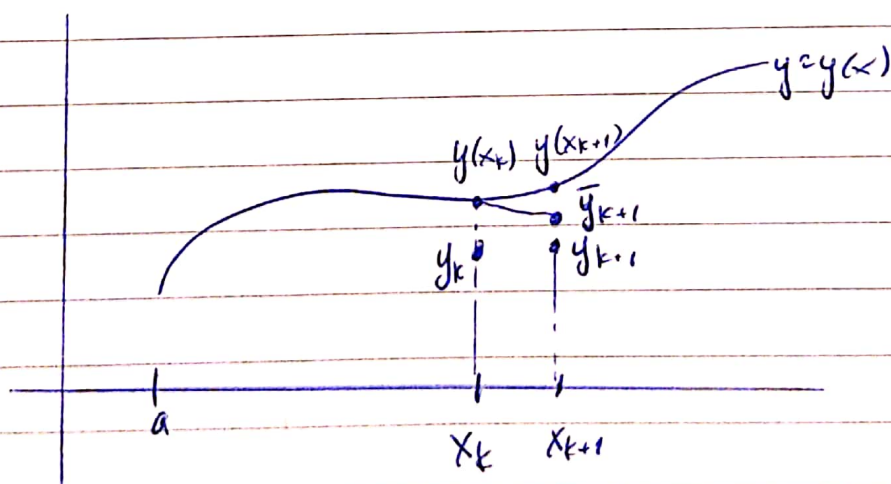 y=y(x)
y(x_k) y(x_{k+1})
ȳ_{k+1}
y_k y_{k+1}
a
x_k x_{k+1}